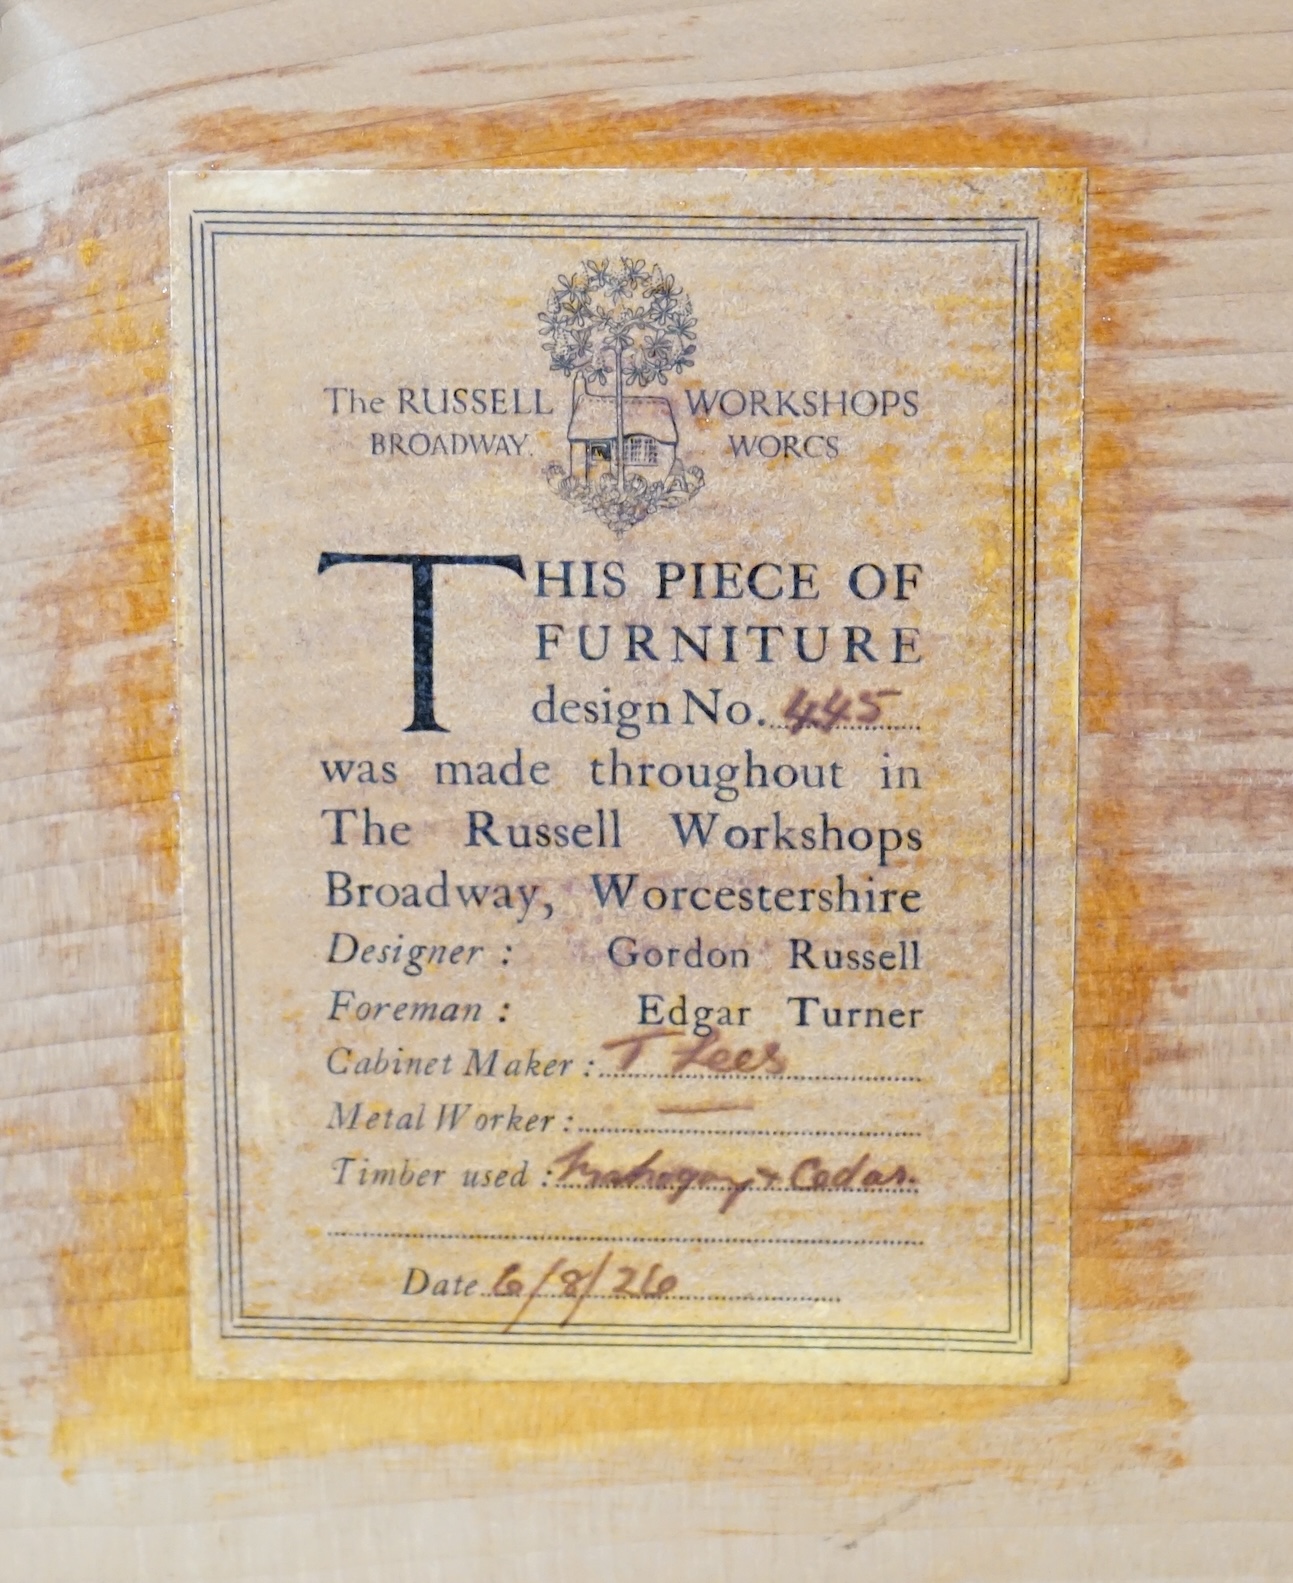 The RUSSELL WORKSHOPS
BROADWAY. WORCS
THIS PIECE OF
FURNITURE
design No. 445
was made throughout in
The Russell Workshops
Broadway, Worcestershire
Designer : Gordon Russell
Foreman : Edgar Turner
Cabinet Maker : T Lees
Metal Worker : —
Timber used : Mahogany + Cedar.
Date 6/8/26